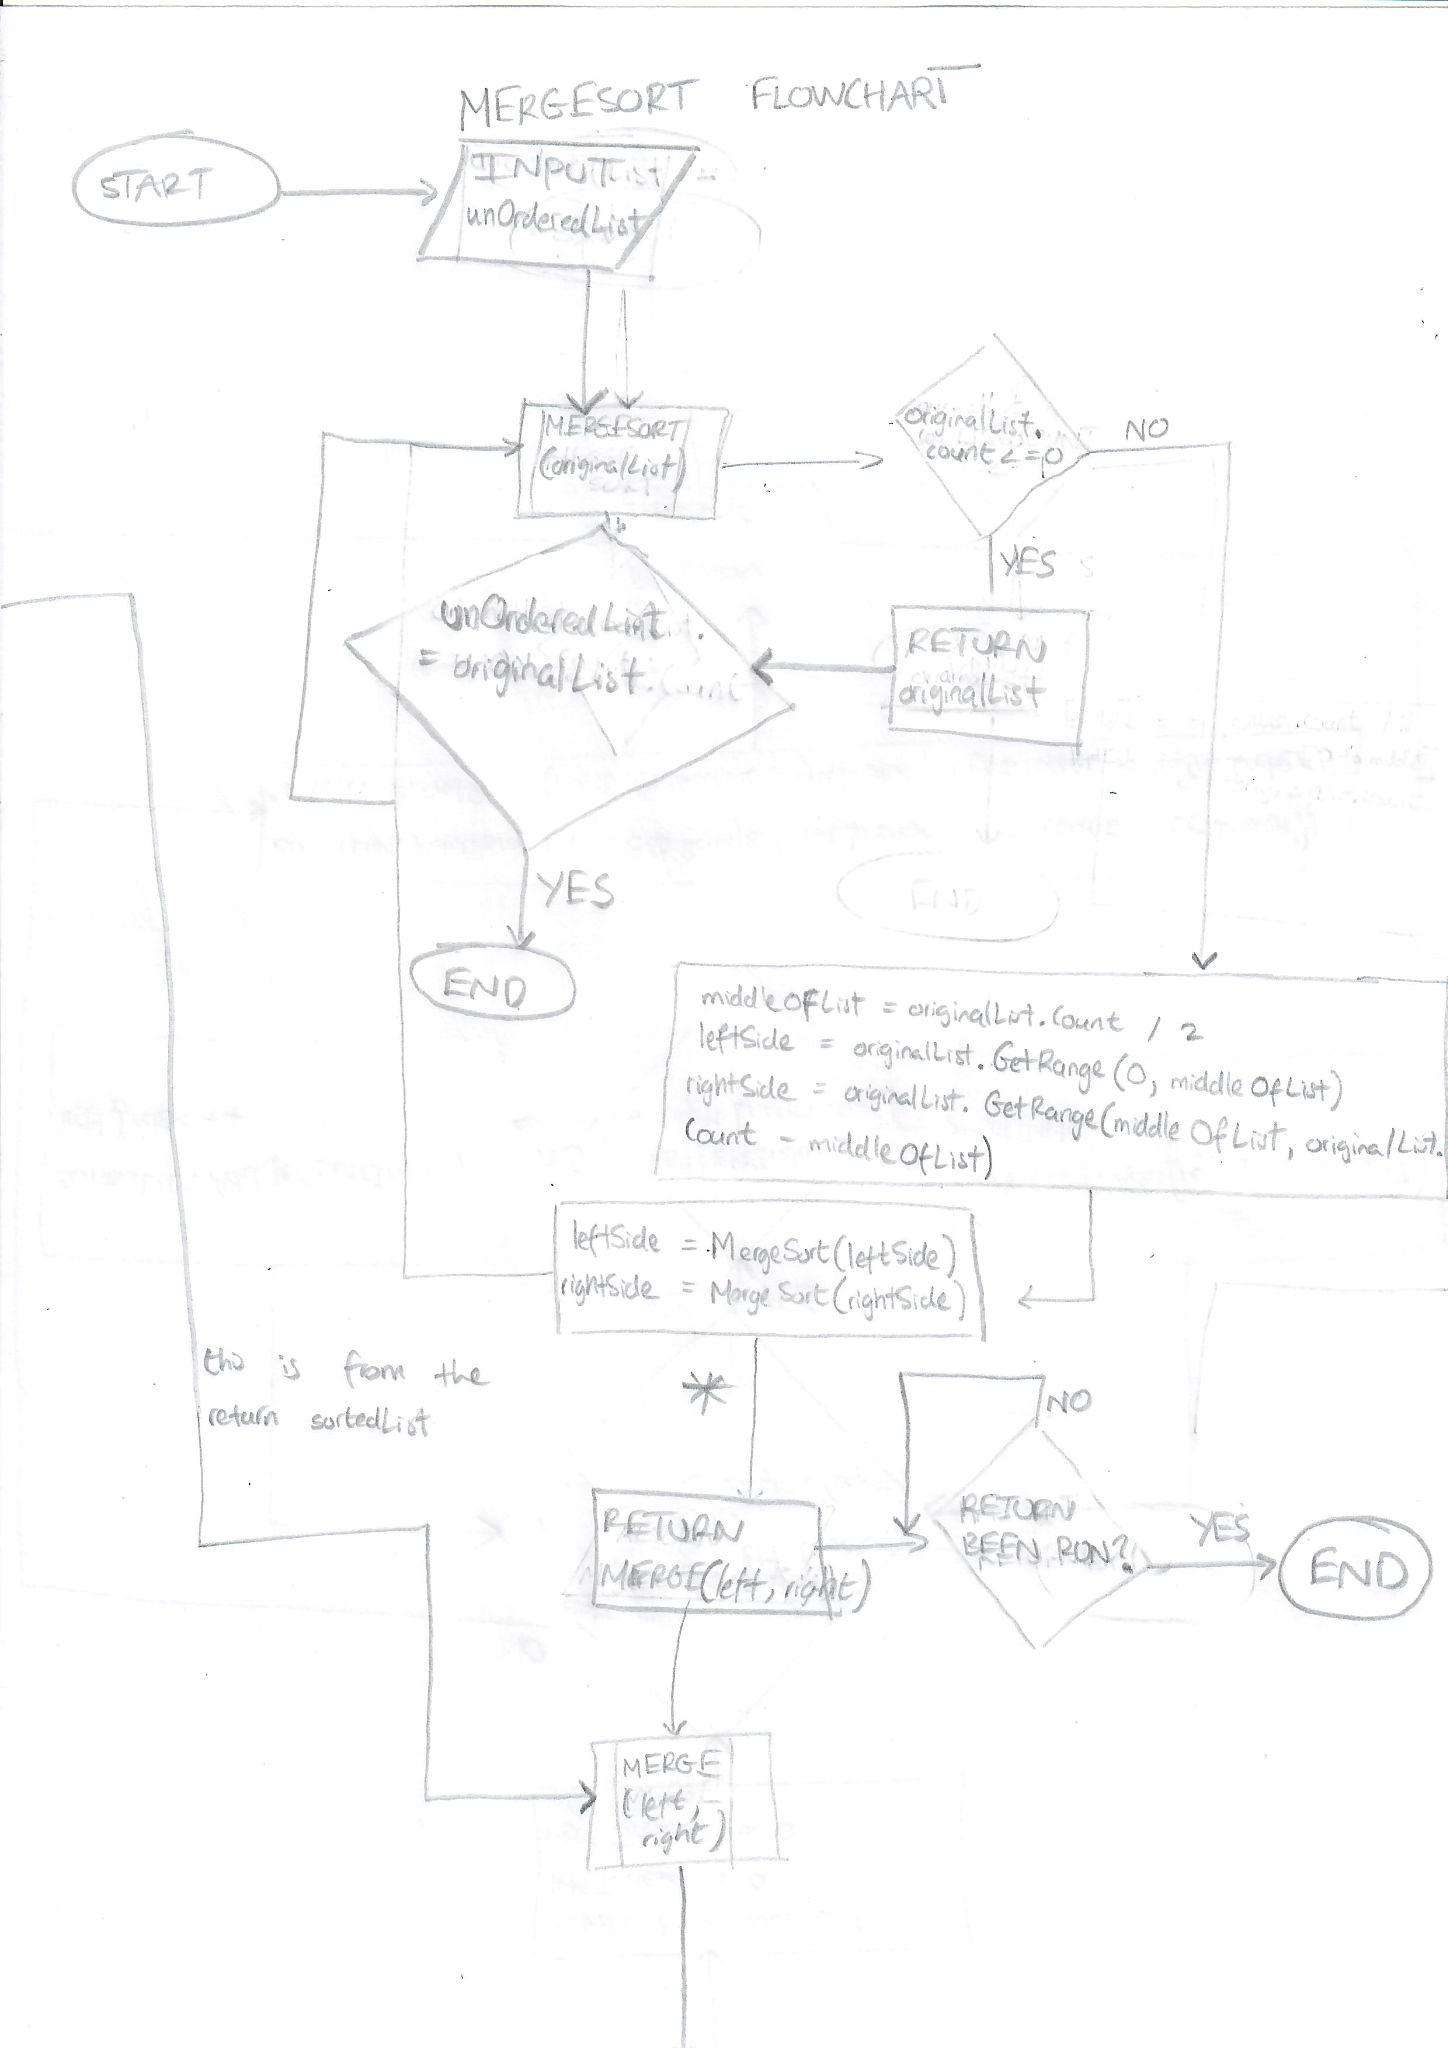 MERGESORT FLOWCHART
START
INPUT
unOrderedList
MERGESORT
(originalList)
originalList.
count <=0
NO
YES
RETURN
originalList
unOrderedList.
= originalList.Count
YES
END
middleOfList = originalList.Count / 2
leftSide = originalList.GetRange(0, middleOfList)
rightSide = originalList.GetRange(middleOfList, originalList.
Count - middleOfList)
leftSide = MergeSort(leftSide)
rightSide = MergeSort(rightSide)
this is from the
return sortedList
*
NO
RETURN
MERGE(left, right)
RETURN
BEEN RUN?
YES
END
MERGE
(left,
right)